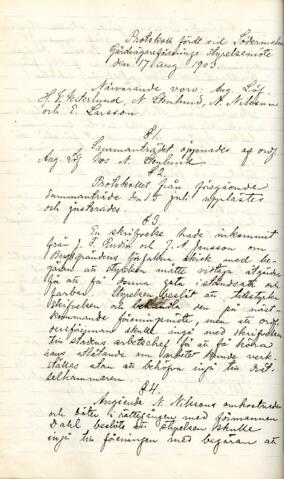 Protokoll fördt vid Södermalms
Gårdsägareförenings Styrelsemöte
den 17 Aug 1903.
Närvarande voro: Aug. Löf,
H. F. Esterlund, N Stenlund, N. Nilsson
och E. Larsson.
§ 1.
Sammanträdet öppnades af ordf
Aug. Löf hos N. Stenlund.
§ 2
Protokollet från föregående
sammanträde den 15 juli upplästes
och justerades.
§ 3
En skrifvelse hade inkommit
från J. F. och J. A. Jonsson om
förfallna skick med be-
gäran att styrelsen måtte vidtaga åtgärder
för att få denna gata iståndsatt och
farbar. Styrelsen beslöt att
skrifvelsen den på näst-
kommande föreningsmöte men att ordf
skulle ingå med skrifvelsen
till stadens arbetschef få att få höra
hans utlåtande om arbetet kunde verk-
ställas utan att behöfva ingå till Drät-
selkammaren.
§ 4.
Angående N. Nilssons omkostnader
och böter i rättegången med förmannen
Dahl beslöts att styrelsen skulle
ingå till föreningen med begäran att